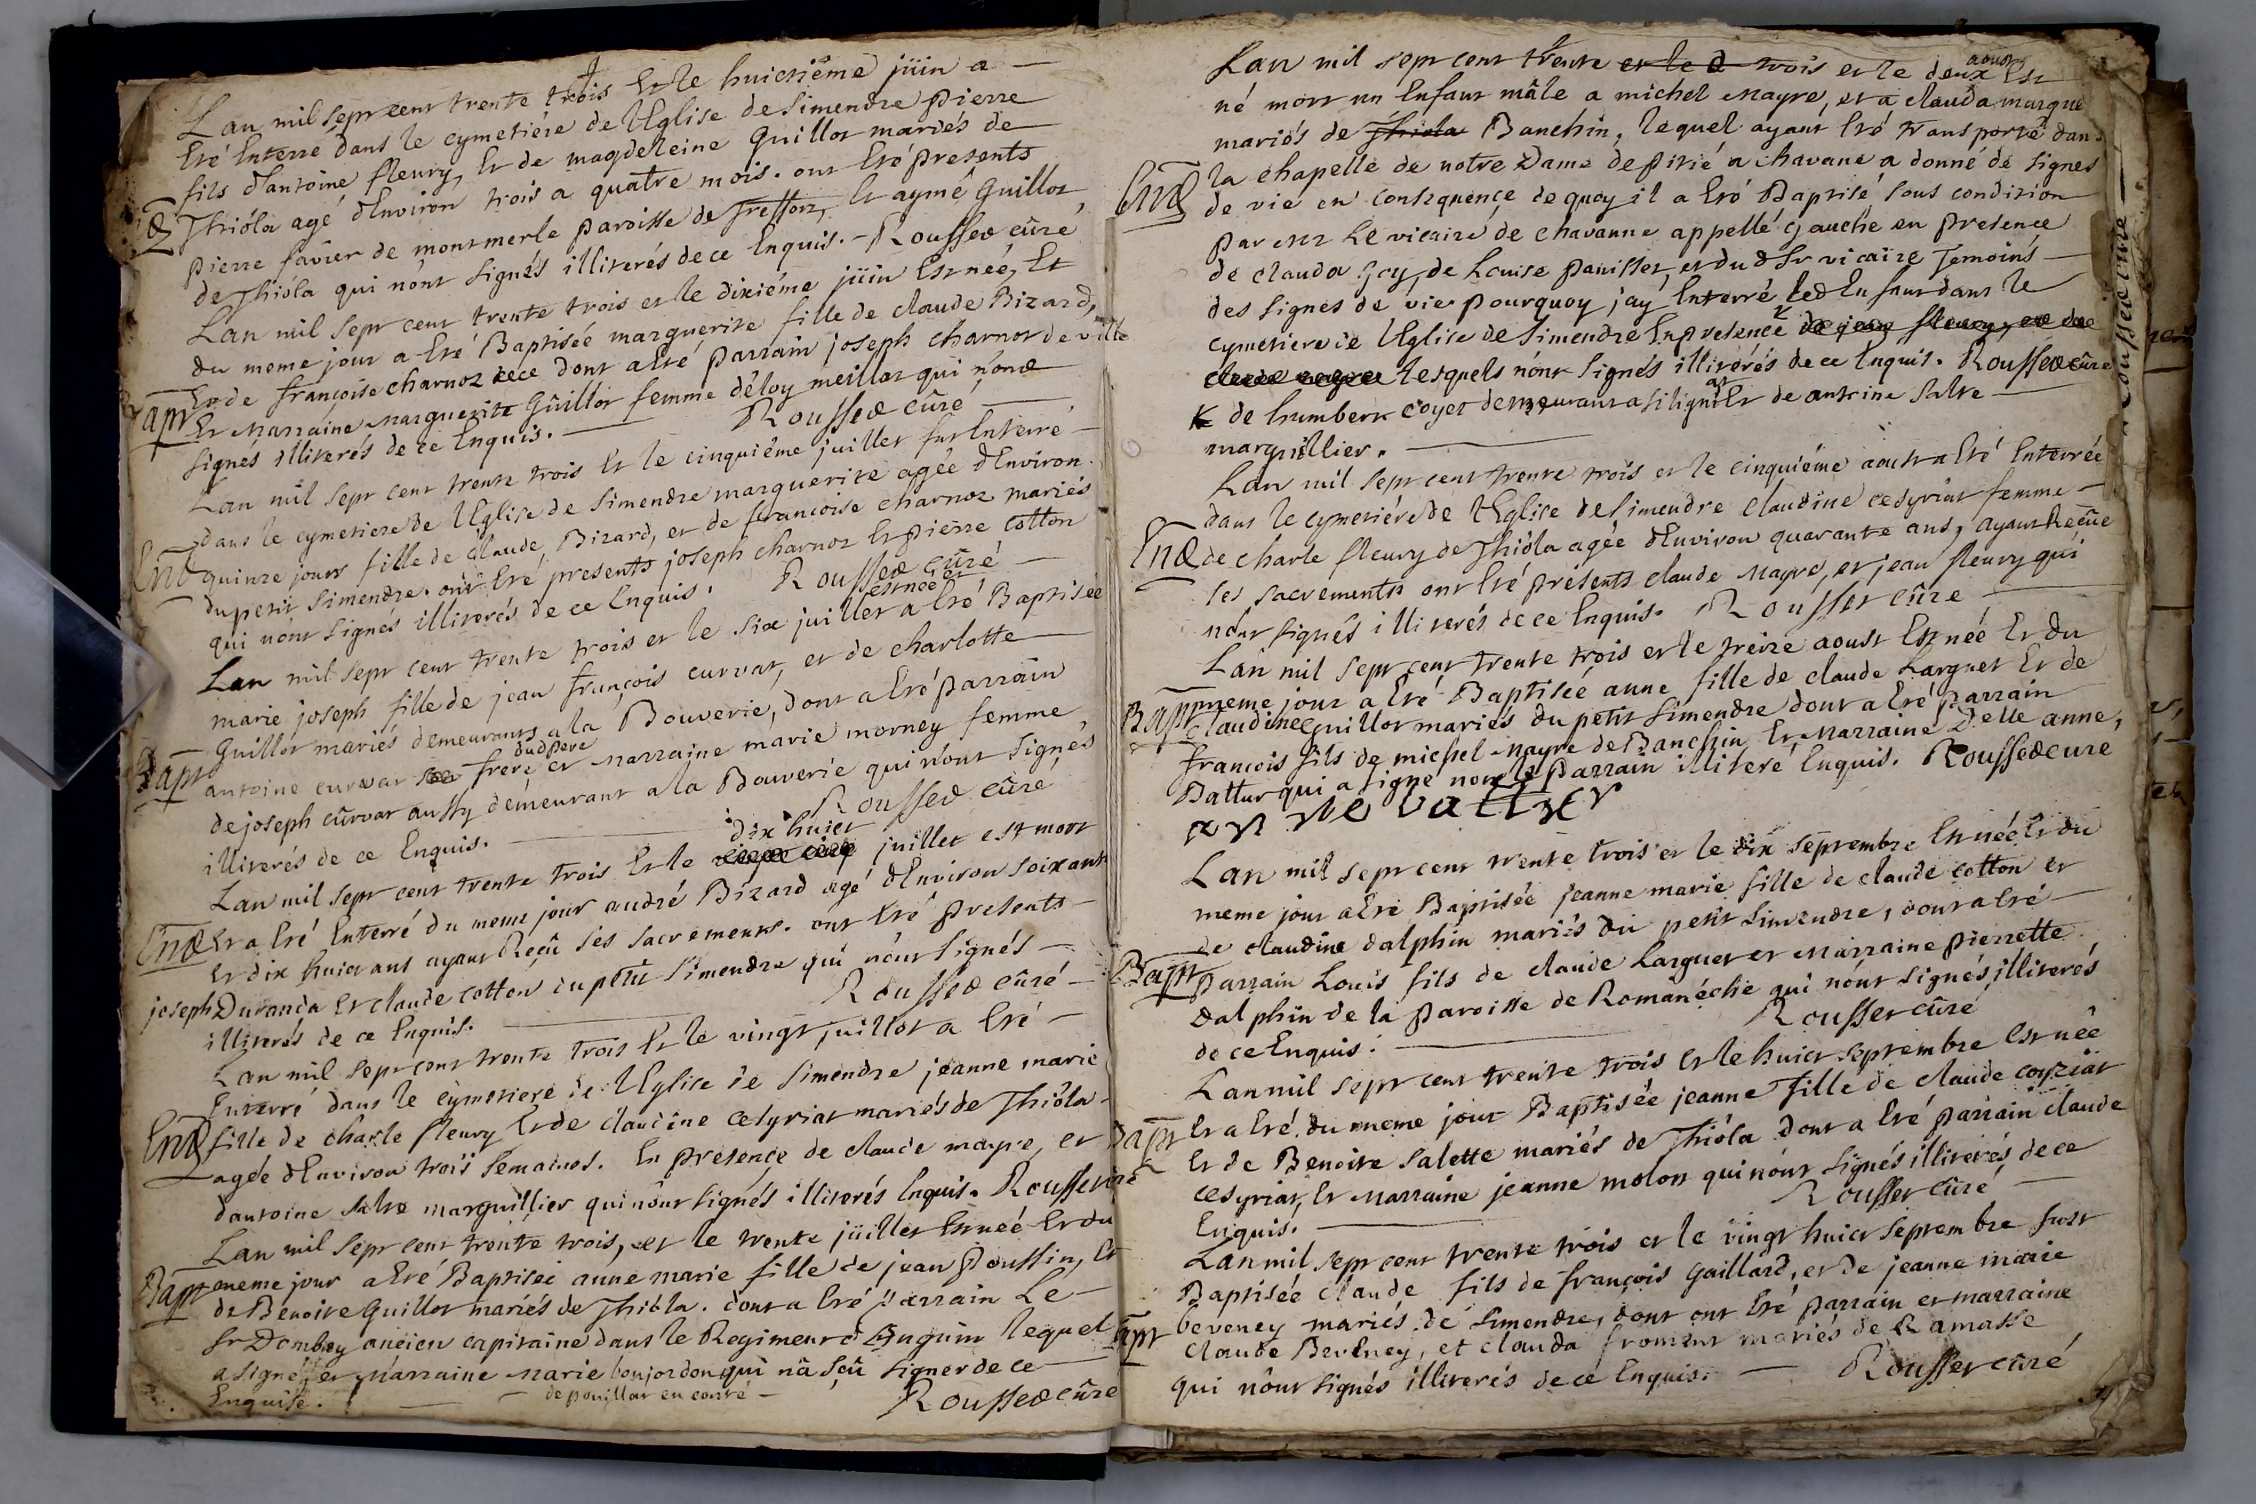 Lan mil sept cent trente trois Et le huictiême jüin a
Eté Enterré dans le cymetiére de lEglise de Simendre pierre
fils d'antoine fleury, Et de magdeleine Guillot mariés de
Thióla agé dEnviron trois a quatre mois. ont Eté presents
pierre favier de montmerle paroisse de Treffort, Et aymé Guillot
de Thióla qui nónt signés illiterés de ce Enquis. Rousset cûré
Lan mil sept cent trente trois et le dixiéme jüin Est née, Et
du meme jour a Eté Baptisée marguerite fille de claude Bizard,
Bapt Et de françoise charnoz dont a Eté parrain joseph charnot de
Et Marraine Marguerite Guillot femme déloy meillat qui nónt
signes illiterés de ce Enquis. Rousset cûré
Lan mil sept cent trente trois Et le cinquiéme juillet fut Enterré
dans le cymetiere de lEglise de Simendre marguerite agée dEnviron
Ent quinze jours fille de claude Bizard, et de francoise charnoz mariés
du petit Simendre. ont Eté presents joseph charnoz Et pierre cotton
qui nónt signés illiterés de ce Enquis. Rousset cûré
est née et
Lan mil sept cent trente trois et le six juillet a Eté Baptisée
marie joseph fille de jean françois curvat, et de charlotte
Guillot mariés demeurants a la Bouverie, dont a Eté parrain
Bapt antoine curvat frere dud pere et Marraine marie morney femme
de joseph cûrvat aussy demeurant a la Bouverie qui nónt signés
illiterés de ce Enquis. Rousset cûré
dix huict
Lan mil sept cent trente trois Et le juillet est mort
Ent Et a Eté Enterré du meme jour andré Bizard agé dEnviron soixante
Et dix huict ans ayant Reçû ses sacrements. ont Eté presents
joseph Duranda Et claude cotton du petit Simendre qui nónt signés
illiterés de ce Enquis. Rousset cûré
Lan mil sept cent trente trois Et le vingt juillet a Eté
Enterré dans le cymetiere de lEglise de Simendre jeanne marie
Ent fille de charle fleury Et de claudine cesyriat mariés de Thióla
agée dEnviron trois semaines. En présence de claude mayre, et
dantoine Salve marguillier qui nónt signés illiterés Enquis. Rousset
Lan mil sept cent trente trois, et le trente jüillet Est née Et du
Bapt meme jour a Eté Baptisée anne marie fille de jean poussin, Et
de Benoite Guillot mariés de Thióla. dont a Eté parrain Le
Sr Dombey ancien capitaine dans le Regiment dEnguin lequel
a signé, et Marraine Marie bonjordon qui nâ sçû signer de ce
Enquise. de pouillat en comté Rousset cûré
Lan mil sept cent trente et le d trois et le deux aoust Est
né mort un Enfant mâle a michel Mayre, et a clauda marque
mariés de Thióla Banchin, lequel ayant Eté transporté dans
la chapelle de notre Dame de pitié a chavane a donné de signes
Ent de vie en consequence de quoy il a Eté Baptisé sous condition
par Le vicaire de chavanne appellé Gauche en presence
de clauda Goy, de Louise panisset, et du d Sr vicaire Temoins
des signes de vie pourquoy j'ay Enterré led Enfant dans le
cymetiere de lEglise de Simendre En presence de jean fleury, et de
lesquels nónt signés illiterés de ce Enquis. Rousset cûré
de humbert coyet demeurant a Silignat Et de antoine Salve
marguillier.
Lan mil sept cent trente trois et le cinquiéme aoust a Eté Enterrée
dans le cymetiére de lEglise de Simendre claudine cesyriat femme
Ent de charle fleury de Thióla agée dEnviron quarante ans, ayant Reçûe
ses sacrements ont Eté présents claude Mayre, et jean fleury qui
nónt signés illiterés de ce Enquis. Rousset cûre
Lan mil sept cent trente trois et le treize aoust Est née Et du
Bapt meme jour a Eté Baptisée anne fille de claude Larguet Et de
claudine Guillot mariés du petit Simendre dont a Eté parrain
françois fils de michel Mayre de Banchin Et Marraine Delle anne,
Battur qui a signé non le parrain illiteré Enquis. Rousset curé
anne battur
Lan mil sept cent trente trois et le dix septembre Est née Et du
meme jour a Eté Baptisée jeanne marie fille de claude cotton et
de claudine dalphin mariés du petit Simendre, dont a Eté
Bapt parrain Louis fils de claude Larguet et Marraine pierrette
Dalphin de la paroisse de Romanéche qui nónt signés, illiterés
de ce Enquis. Rousset cûré
Lan mil sept cent trente trois et le huict septembre Est née
Bapt Et a Eté du meme jour Baptisée jeanne fille de claude
Et de Benoite Salette mariés de Thióla dont a Eté parrain claude
cesyriat, Et Marraine jeanne molon qui nónt signés illiterés, de ce
Enquis. Rousset cûré
Lan mil sept cent trente trois et le vingt huict septembre fust
Baptisée claude fils de françois Gaillard, et de jeanne marie
beveney mariés de Simendre, dont ont Eté parrain et marraine
Bapt claude Beveney, et clauda froment mariés de Ramasse
qui nónt signés illiterés de ce Enquis. Rousset cûré